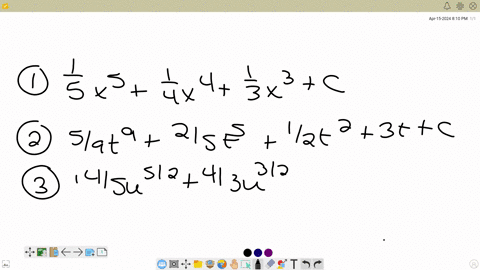 Apr 15-2024 8:15 PM
① 1/5 x⁵ + 1/4 x⁴ + 1/3 x³ + C
② 5/9t⁹ + 2/5t⁵ + 1/2t² + 3t + C
③ 14/5u^5/2 + 4/3u^3/2